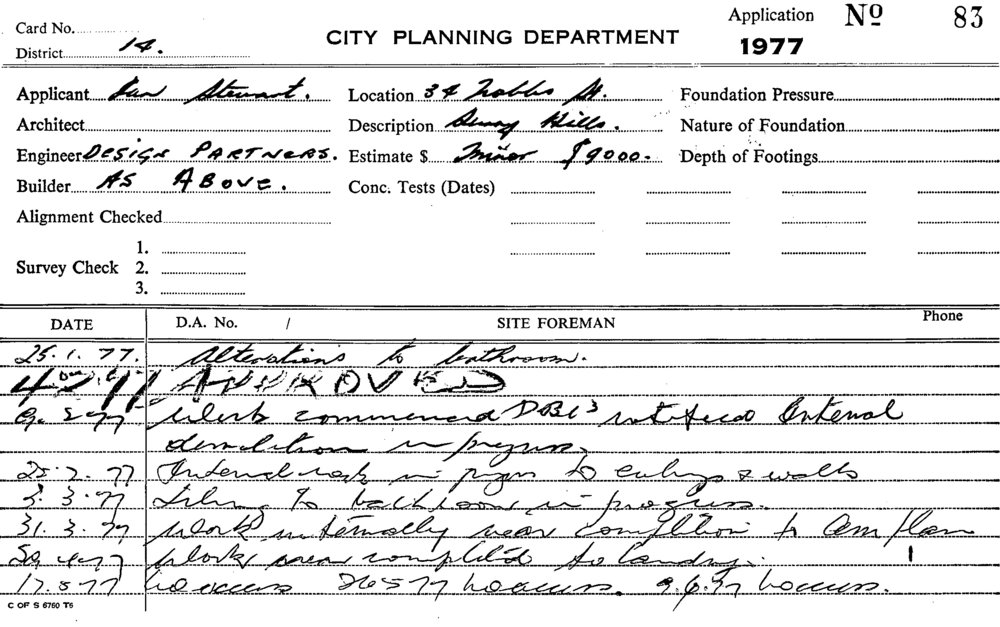 Card No.
District 14.
CITY PLANNING DEPARTMENT
Application No 83
1977
Applicant Ian Stewart.
Location 34 Nobbs St.
Foundation Pressure
Architect
Description Surry Hills.
Nature of Foundation
Engineer DESIGN PARTNERS.
Estimate $ Minor $9000.
Depth of Footings
Builder AS ABOVE.
Conc. Tests (Dates)
Alignment Checked
Survey Check 1.
2.
3.
DATE D.A. No. / SITE FOREMAN Phone
25.1.77. Alterations to bathroom.
4 2 77 APPROVED
9. 2 77 Work commenced Internal
demolition in progress.
25.2.77 Internal work in progress to ceilings & walls
3 3 77 Tiling to bathroom in progress.
31.3.77 Work internally near completion to
4 77 Work near completed to laundry.
17.5.77 no access 26 5 77 no access. 9.6.77 no access.
C OF S 6760 T6